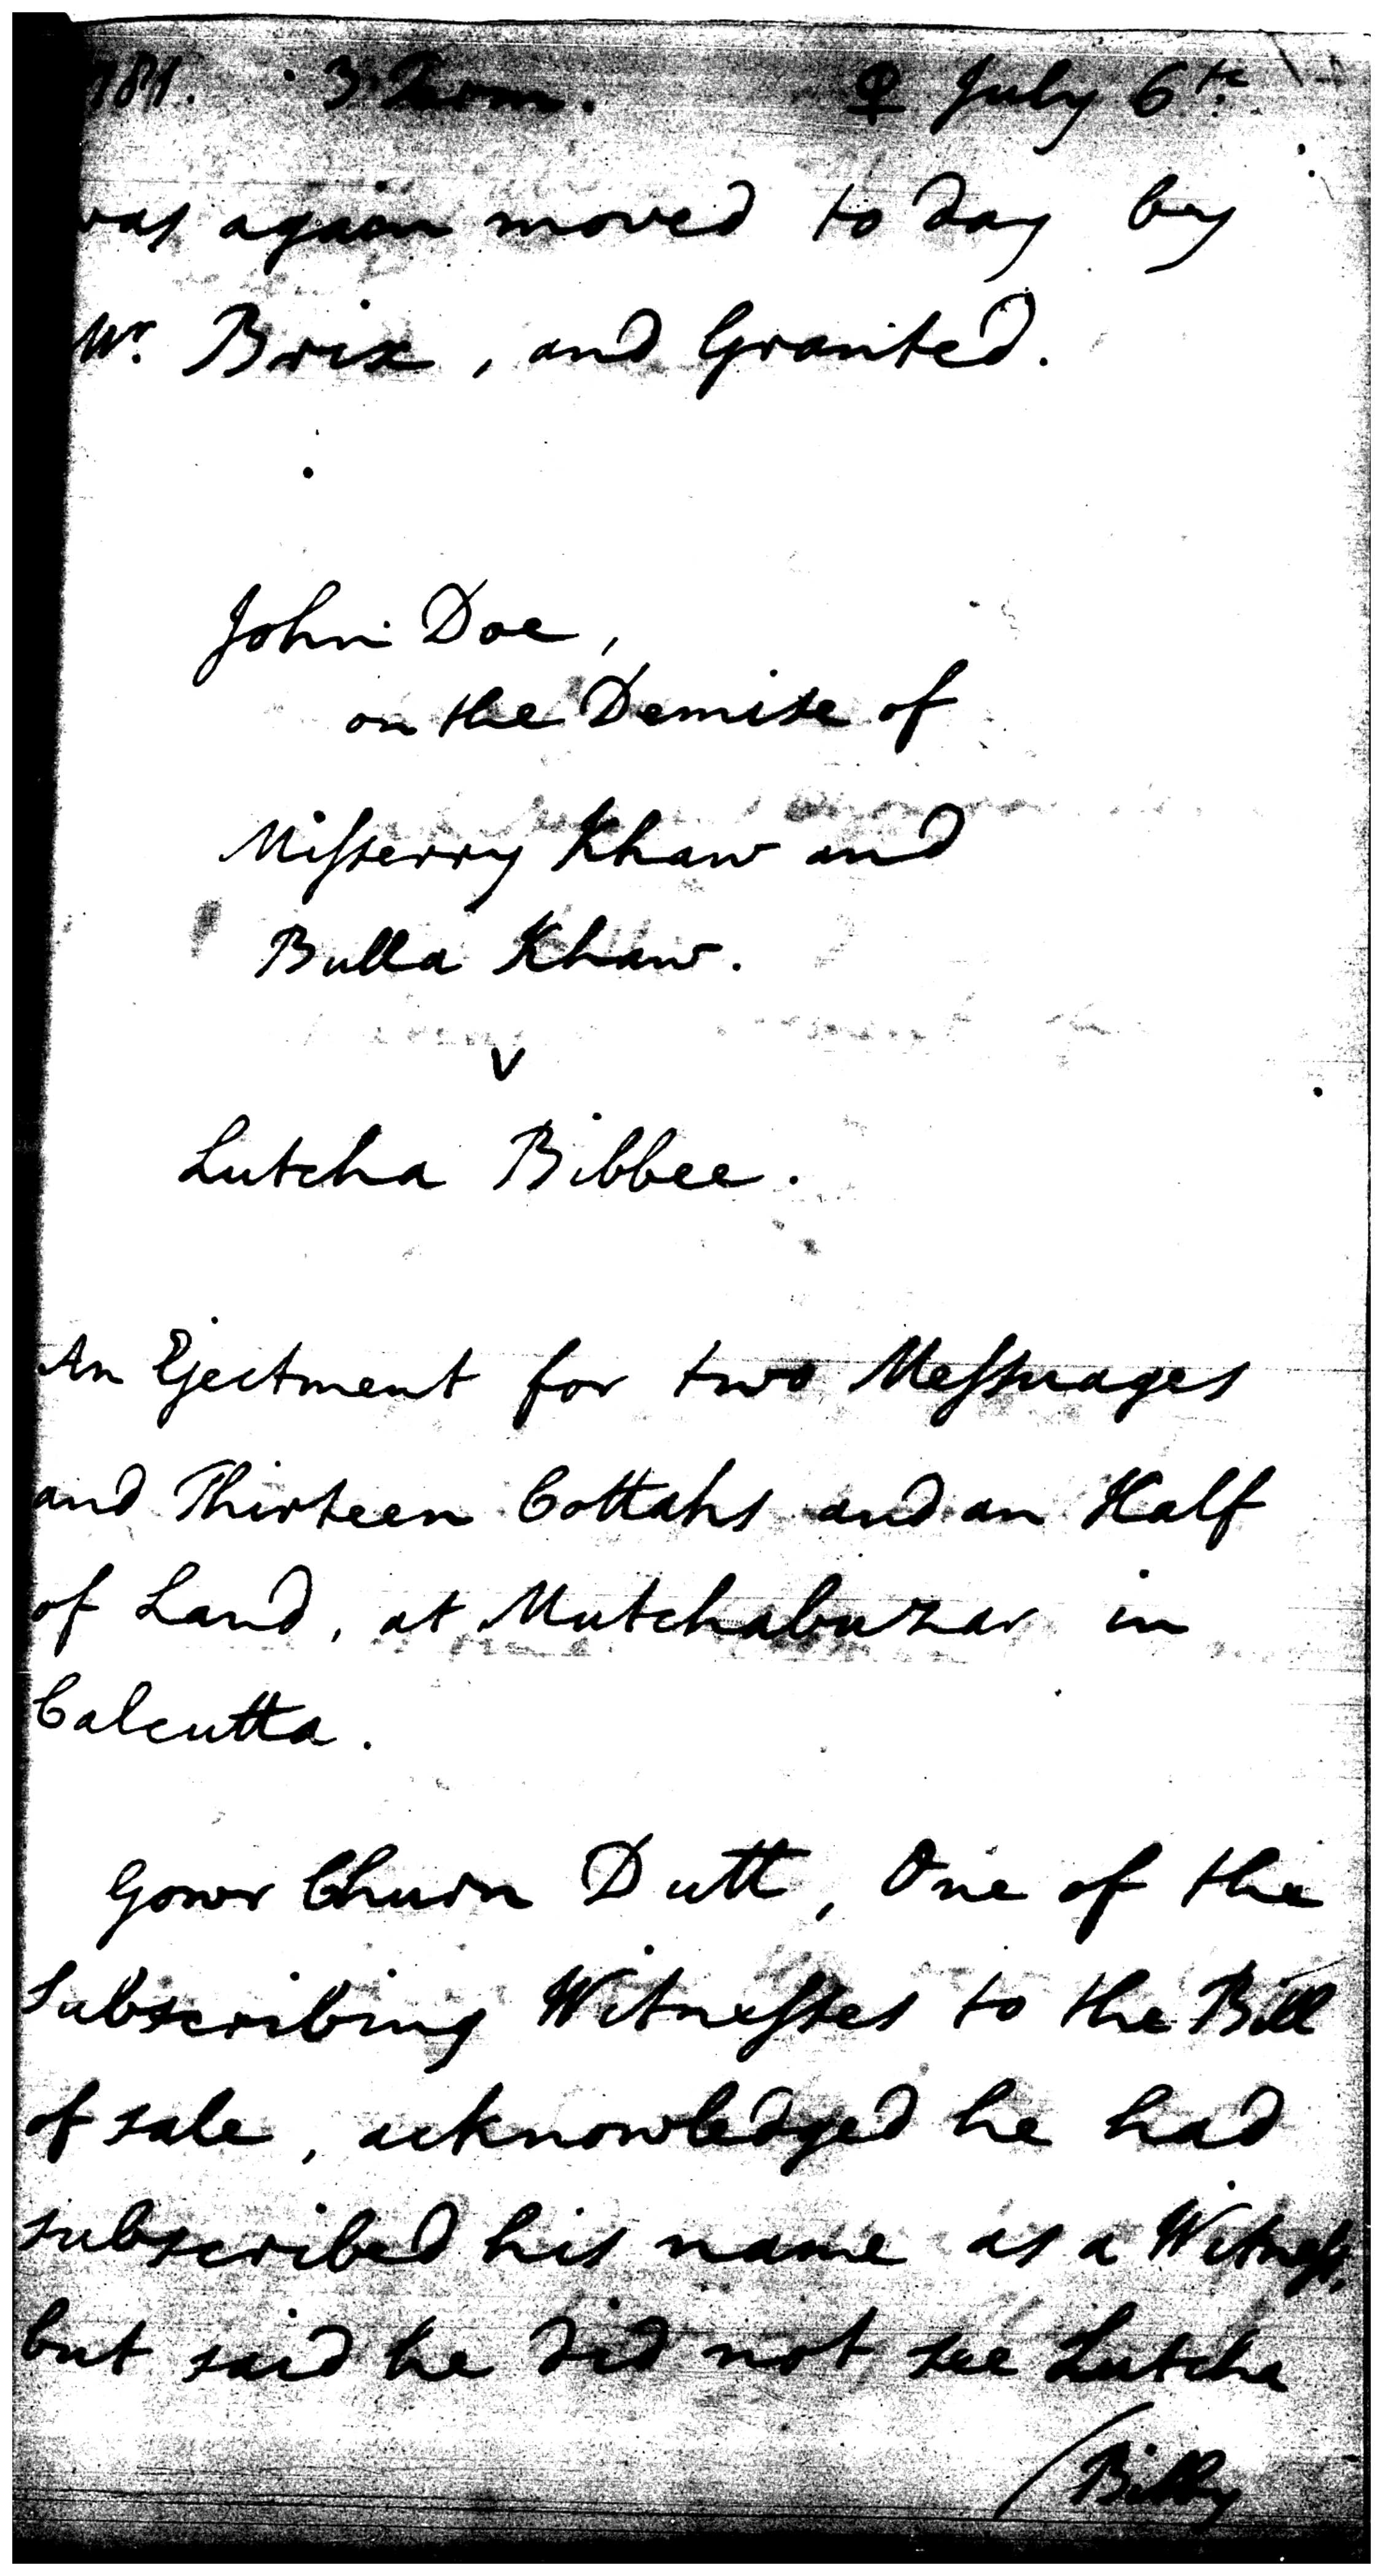 1781. 3 Term. ♀ July 6th.
was again moved to day by
Mr. Brix, and Granted.
John Doe,
on the Demise of
Misserry Khaw and
Bulla Khaw.
v
Lutcha Bibbee.
An Ejectment for two Messuages
and Thirteen Cottahs and an Half
of Land, at Mutchabuzar in
Calcutta.
Gowr Churn Dutt, One of the
Subscribing Witnesses to the Bill
of sale, acknowledged he had
subscribed his name as a Witness,
but said he did not see Lutcha
(Bibby